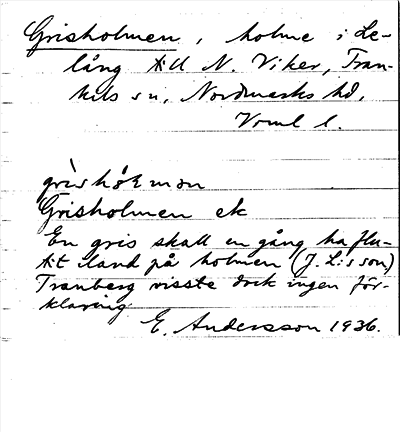 Grisholmen, holme i Le-
lång till N. Viker, Tran-
kils sn, Nordmarks hd,
Vrml l.
grìshòłmən
Grisholmen ek
En gris skall en gång ha flu-
tit iland på holmen (J. L:s son)
Tranberg visste dock ingen för-
klaring.
E. Andersson 1936.